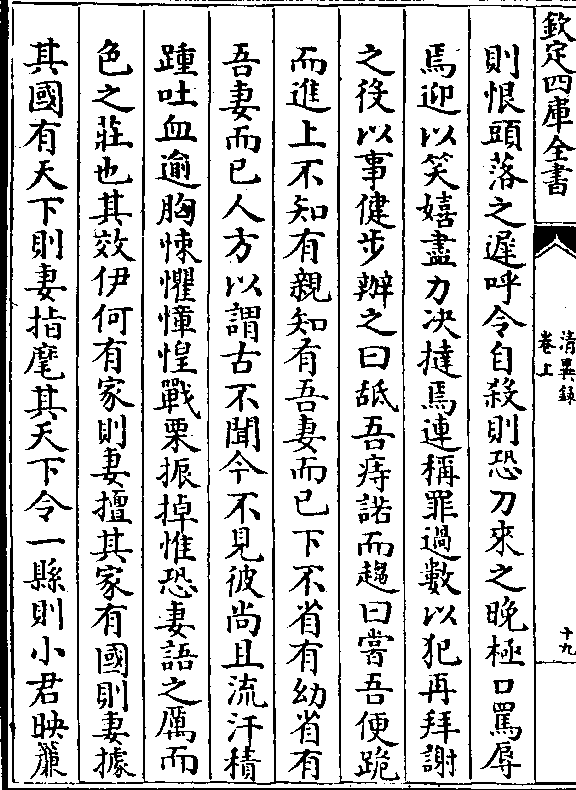 欽定四庫全書
清異錄
卷上
十九
則恨頭落之遲呼令自殺則恐刀來之晚極口罵辱
焉迎以笑嬉盡力决撻焉連稱罪過數以犯再拜謝
之役以事健步辦之曰舐吾痔諾而趨曰嘗吾便跪
而進上不知有親知有吾妻而已下不省有幼省有
吾妻而已人方以謂古不聞今不見彼尚且流汗積
踵吐血逾胸悚懼慞惶戰栗振掉惟恐妻語之厲而
色之莊也其效伊何有家則妻擅其家有國則妻據
其國有天下則妻指麾其天下令一縣則小君映簾